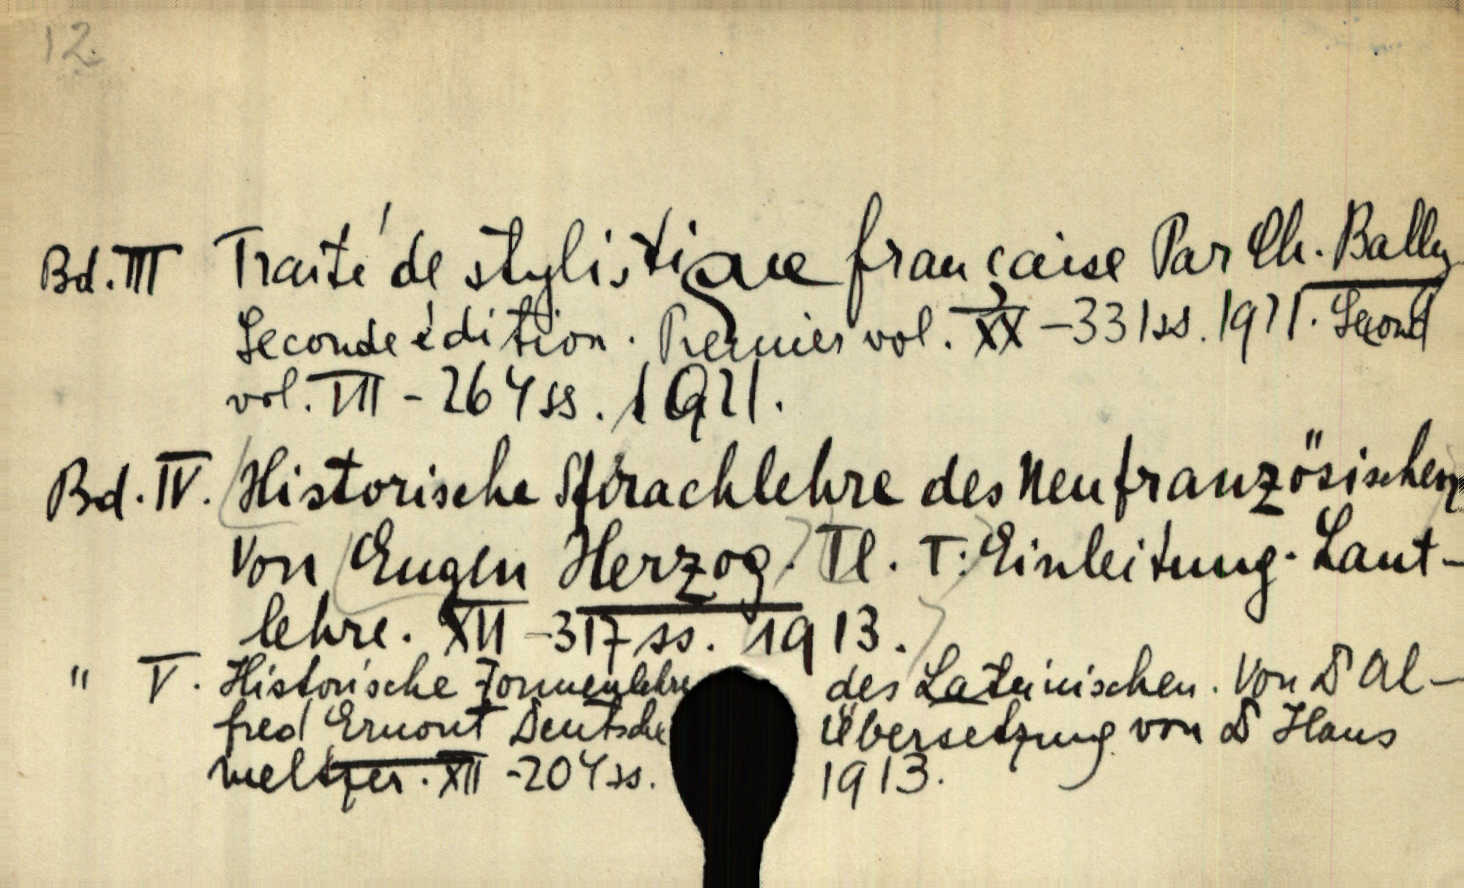 12.
Bd. III Traité de stylistique française Par Ch. Bally
Seconde édition. Premier vol. XX - 331 ss. 1921. Second
vol. VII - 264 ss. 1921.
Bd. IV. Historische Sprachlehre des Neufranzösischen
Von Eugen Herzog. Tl. I: Einleitung. Laut-
lehre. XII - 317 ss. 1913.
" V. Historische Formenlehre des Lateinischen. Von Dr Al-
fred Ernout Deutsche Übersetzung von Dr Hans
Meltzer. XII - 204 ss. 1913.